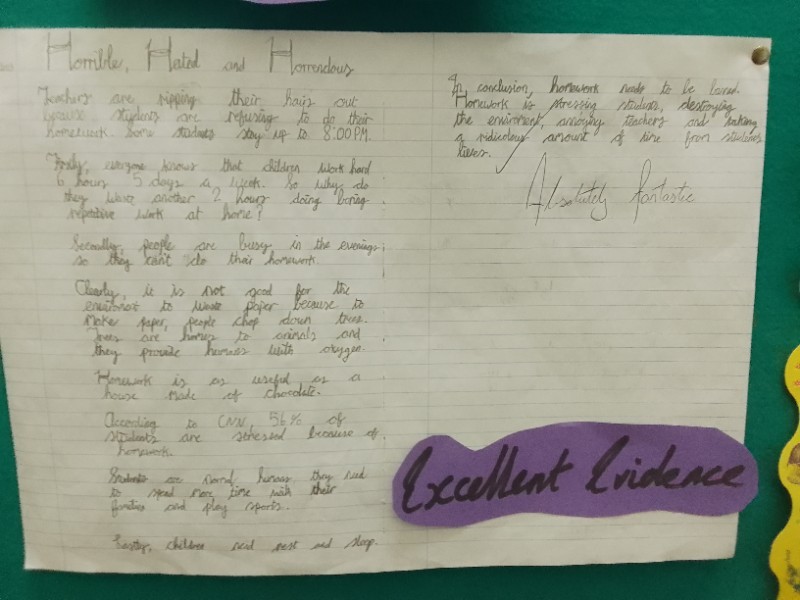 Horrible, Hated and Horrendous
Teachers are ripping their hairs out
because students are refusing to do their
homework. Some students stay up to 8:00PM.
Firstly, everyone knows that children work hard
6 hours 5 days a week. So why do
they waste another 2 hours doing boring
repetitive work at home?
Secondly, people are busy in the evenings
so they can't do their homework.
Clearly, it is not good for the
to waste paper because to
make paper, people chop down trees.
Trees are homes to animals and
they provide humans with oxygen.
Homework is as useful as a
house made of chocolate.
According to CNN, 56% of
students are stressed because of
homework.
Students are normal humans, they need
to spend more time with their
families and play sports.
Lastly, children need rest and sleep.
In conclusion, homework needs to be
Homework is stressing students, destroying
the annoying teachers and taking
a ridiculous amount of time from students
lives.
Absolutely fantastic
Excellent Evidence